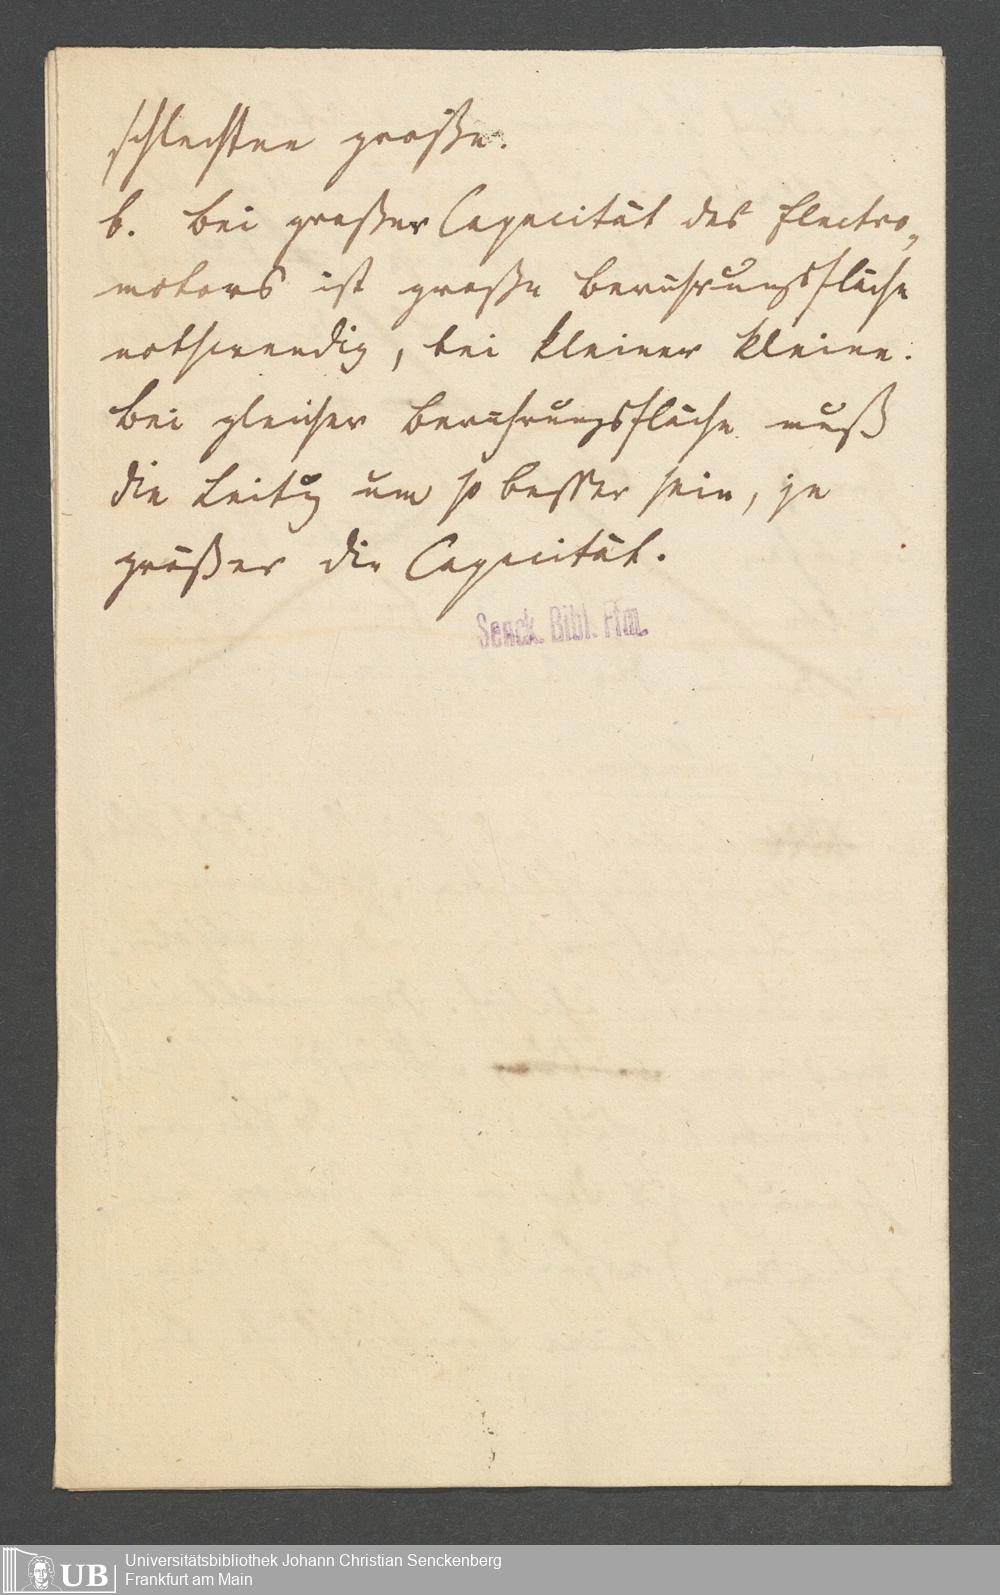 schlechten große.
b. bei großer Capacität des Electro-
motors ist große Berührungsfläche
nothwendig, bei kleiner kleine.
Bei gleicher Berührungsfläche muß
die Leitug um so besser sein, je
größer die Capacität.
Senck. Bibl. Ffm.
UB
Universitätsbibliothek Johann Christian Senckenberg
Frankfurt am Main